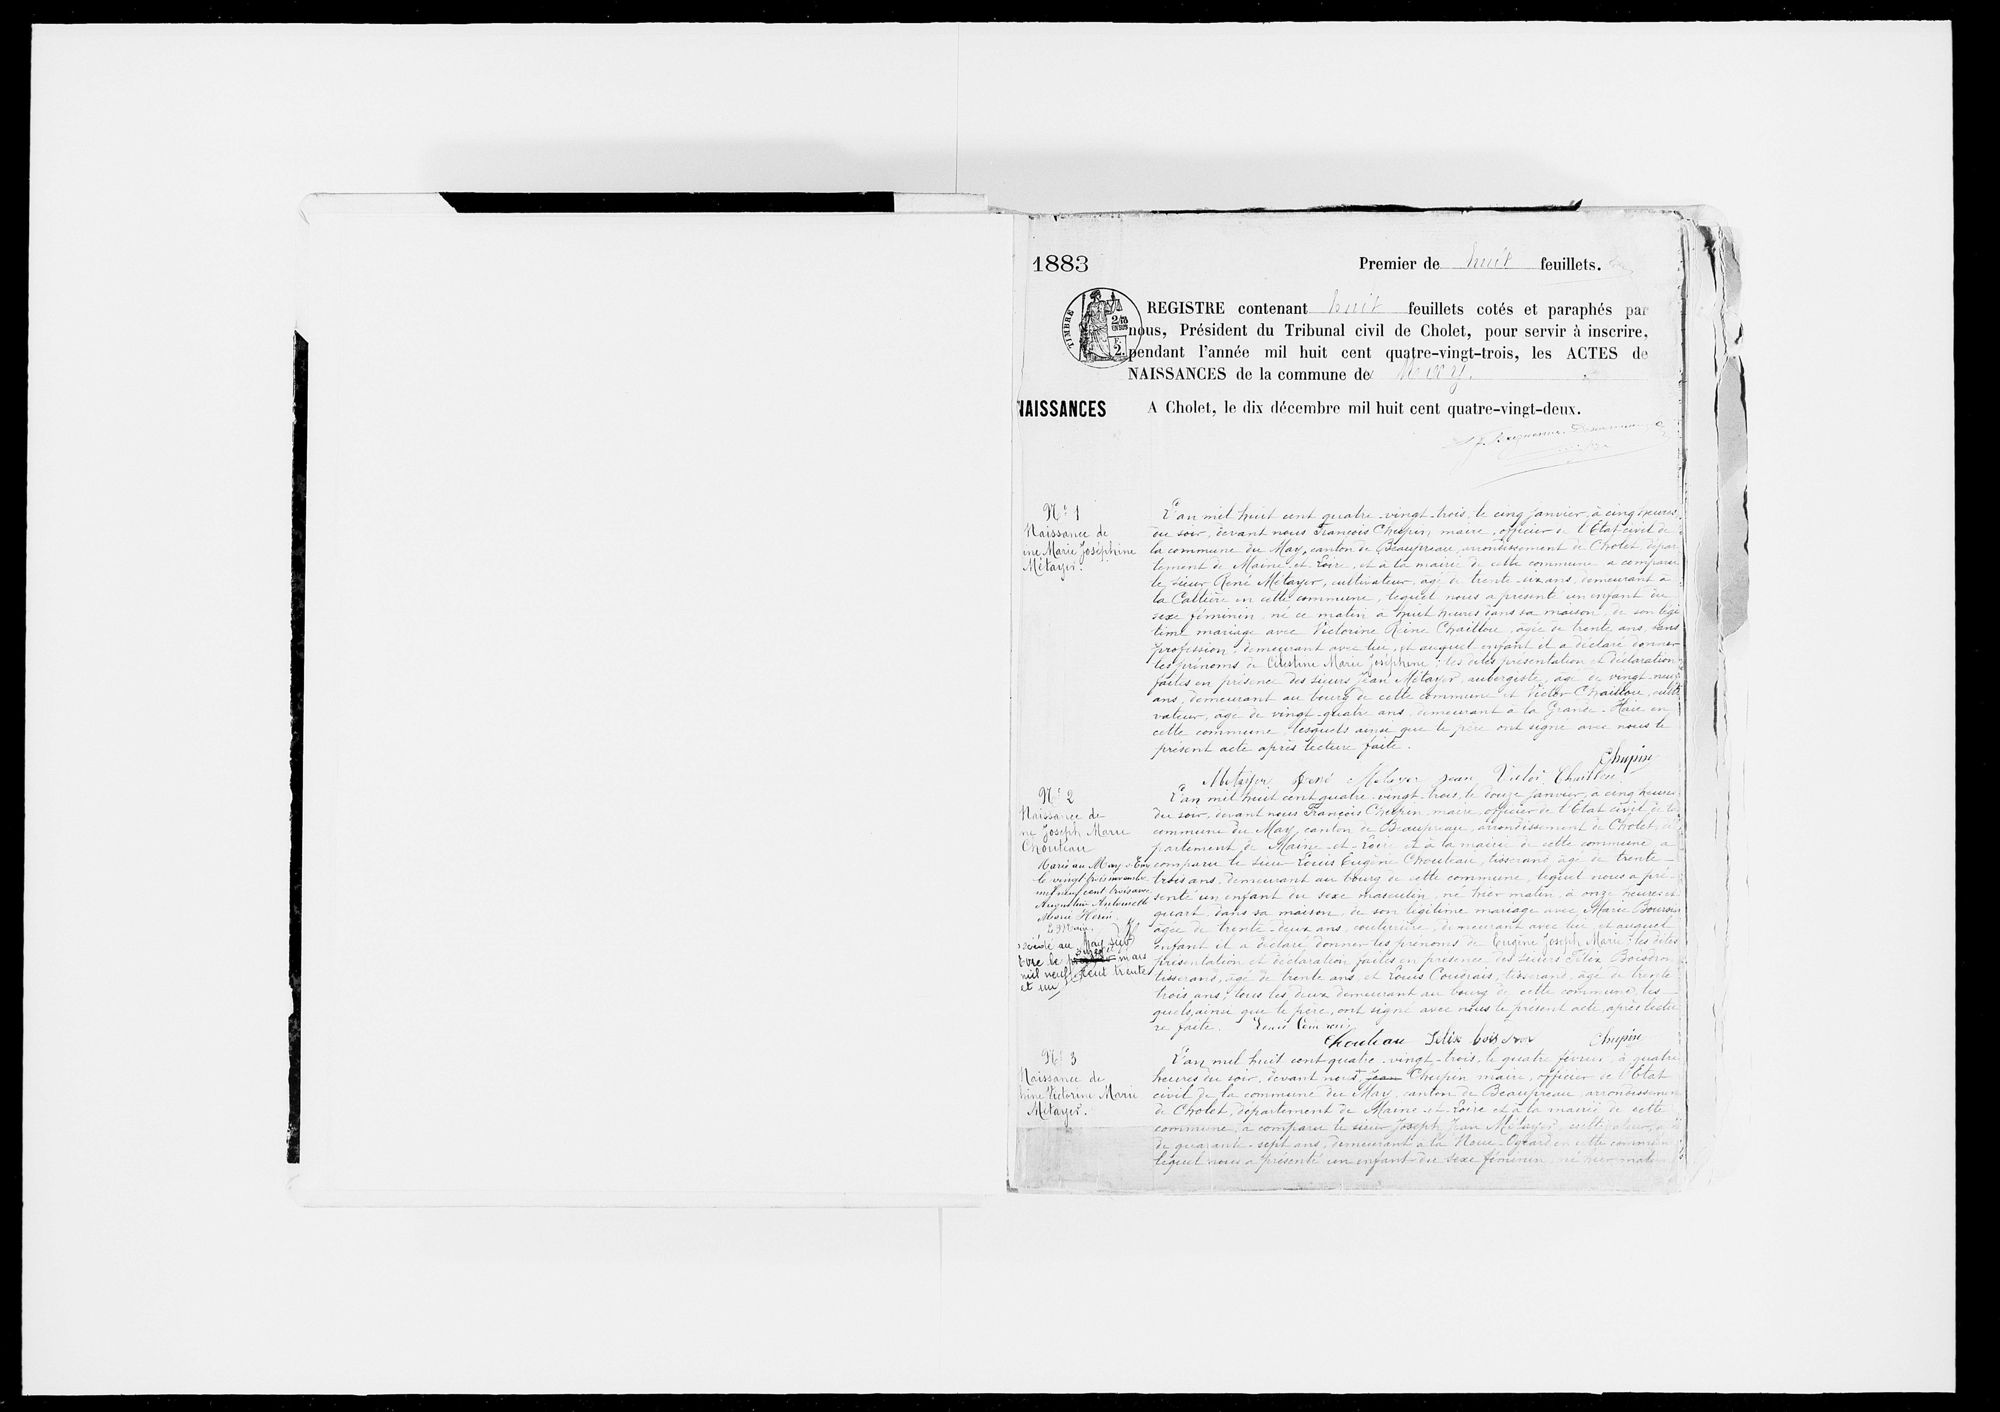 1883
Premier de huit feuillets.
TIMBRE
REGISTRE contenant huit feuillets cotés et paraphés par
nous, Président du Tribunal civil de Cholet, pour servir à inscrire,
pendant l'année mil huit cent quatre-vingt-trois, les ACTES de
NAISSANCES de la commune de May.
NAISSANCES
A Cholet, le dix décembre mil huit cent quatre-vingt-deux.
N° 1
Naissance de
ine Marie Joséphine
Métayer.
L'an mil huit cent quatre-vingt-trois, le cinq janvier, à cinq heures
du soir, devant nous François Chupin, maire, officier de l'Etat civil de
la commune du May, canton de Beaupreau, arrondissement de Cholet, dépar
tement de Maine-et-Loire, et à la mairie de cette commune a comparu
le sieur René Métayer, cultivateur, âgé de trente-six ans, demeurant à
la Cattière en cette commune, lequel nous a présenté un enfant du
sexe féminin, né ce matin à huit heures dans sa maison, de son légi
time mariage avec Victorine Reine Chaillou, âgée de trente ans, sans
profession, demeurant avec lui, et auquel enfant il a déclaré donner
les prénoms de Célestine Marie Joséphine; les dites présentation et déclaration
faites en présence des sieurs Jean Métayer, aubergiste, âgé de vingt-neuf
ans, demeurant au bourg de cette commune et Victor Chaillou, culti
vateur, âgé de vingt-quatre ans, demeurant à la Grande-Haie en
cette commune, lesquels ainsi que le père ont signé avec nous le
présent acte après lecture faite.
Chupin
Métayer René Métayer Jean Victor Chaillou
N° 2
Naissance de
ne Joseph Marie
Chouteau
Marié au May-s-Evre
le vingt trois novembre
mil neuf cent trois avec
Augustine Antoinette
Marie Hérin.
décédé au May sur
Evre le mars
mil neuf cent trente
et un
L'an mil huit cent quatre-vingt-trois, le douze janvier, à cinq heures
du soir, devant nous François Chupin, maire, officier de l'Etat civil de la
commune du May, canton de Beaupreau, arrondissement de Cholet, dé
partement de Maine-et-Loire et à la mairie de cette commune a
comparu le sieur Louis Eugène Chouteau, tisserand, âgé de trente-
trois ans, demeurant au bourg de cette commune, lequel nous a pré-
senté un enfant du sexe masculin, né hier matin, à onze heures et
quart, dans sa maison, de son légitime mariage avec Marie Boursin
âgée de trente-deux ans, couturière, demeurant avec lui et auquel
enfant il a déclaré donner les prénoms de Eugène Joseph Marie; les dites
présentation et déclaration faites en présence des sieurs Félix Boisdron
tisserand, âgé de trente ans et Louis Coudrais, tisserand, âgé de trente
trois ans, tous les deux demeurant au bourg de cette commune, les-
quels, ainsi que le père, ont signé avec nous le présent acte, après lectu
re faite.
Chouteau Félix boisdron Chupin
N° 3
Naissance de
hine Victorine Marie
Métayer.
L'an mil huit cent quatre-vingt-trois, le quatre février, à quatre
heures du soir, devant nous, Jean Chupin maire, officier de l'Etat
civil de la commune du May, canton de Beaupreau, arrondissement
de Cholet, département de Maine-et-Loire et à la mairie de cette
commune, a comparu le sieur Joseph Jean Métayer, cultivateur, âgé
de quarante-sept ans, demeurant à la Noue-Ogeard en cette commune
lequel nous a présenté un enfant du sexe féminin, né hier matin